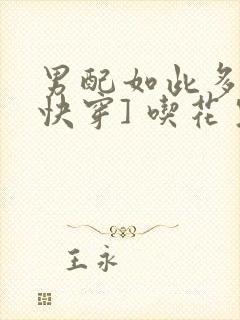 男配如此多
快穿] 喫花
王永